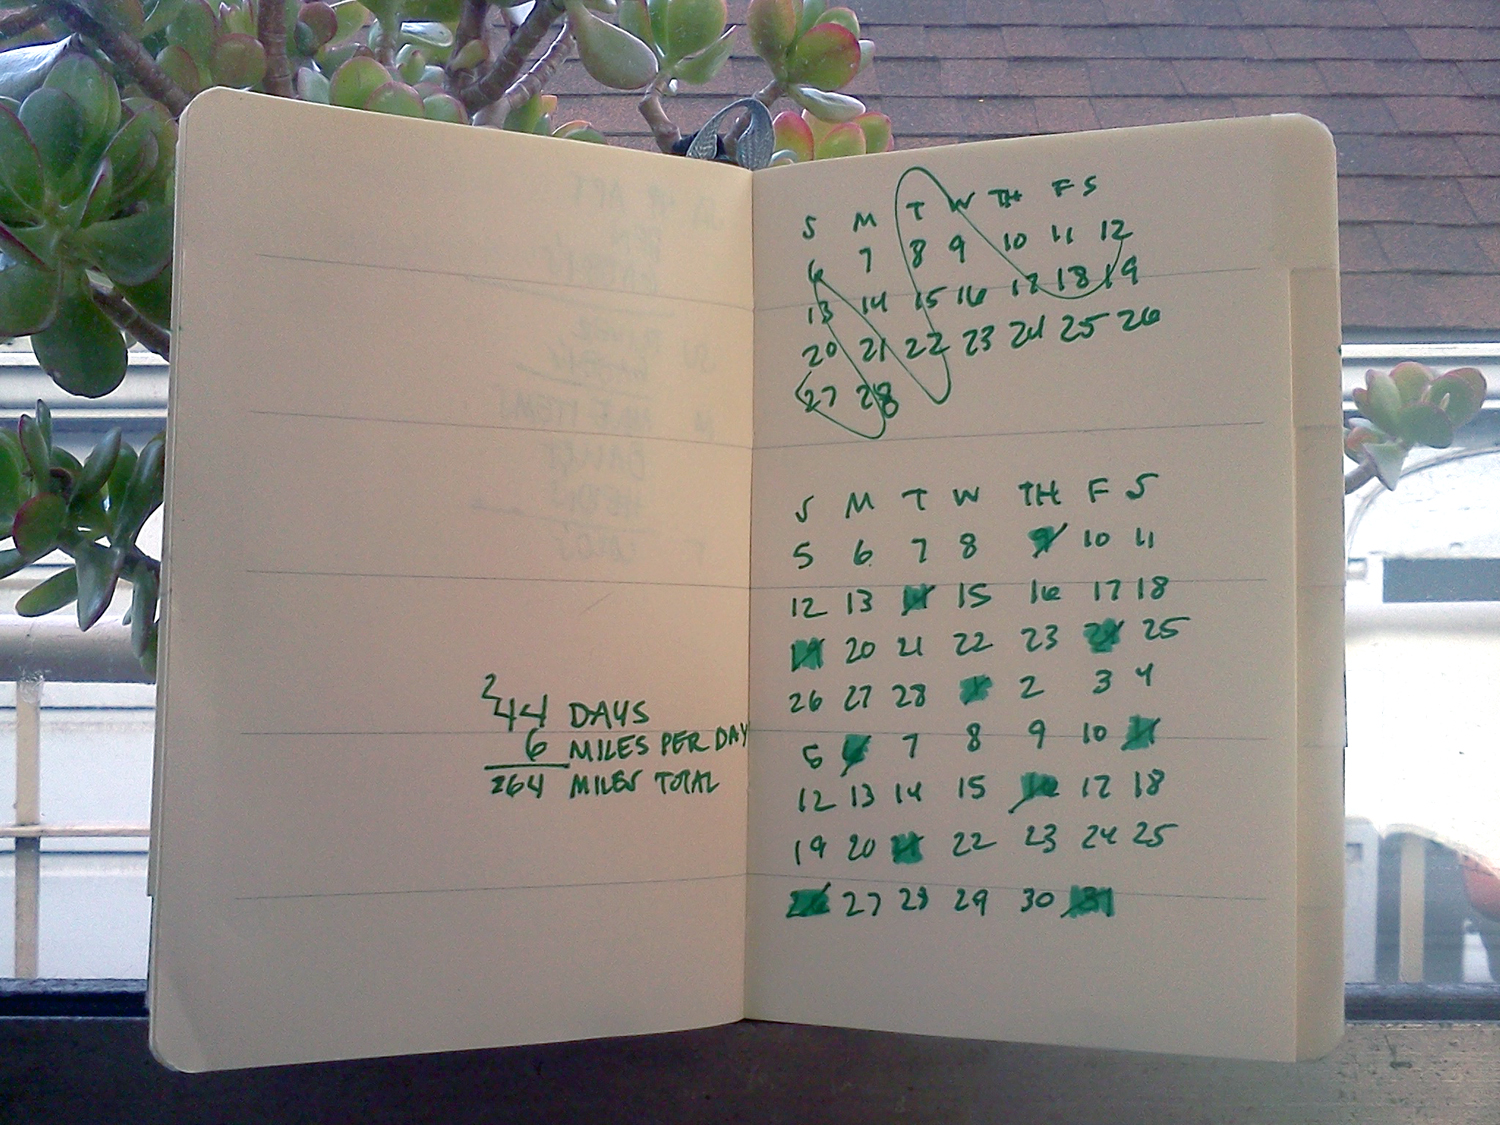 2
44 DAYS
6 MILES PER DAY
264 MILES TOTAL
S M T W TH F S
6 7 8 9 10 11 12
13 14 15 16 17 18 19
20 21 22 23 24 25 26
27 28
S M T W TH F S
5 6 7 8 9 10 11
12 13 14 15 16 17 18
19 20 21 22 23 24 25
26 27 28 1 2 3 4
5 6 7 8 9 10 11
12 13 14 15 16 17 18
19 20 21 22 23 24 25
26 27 28 29 30 31